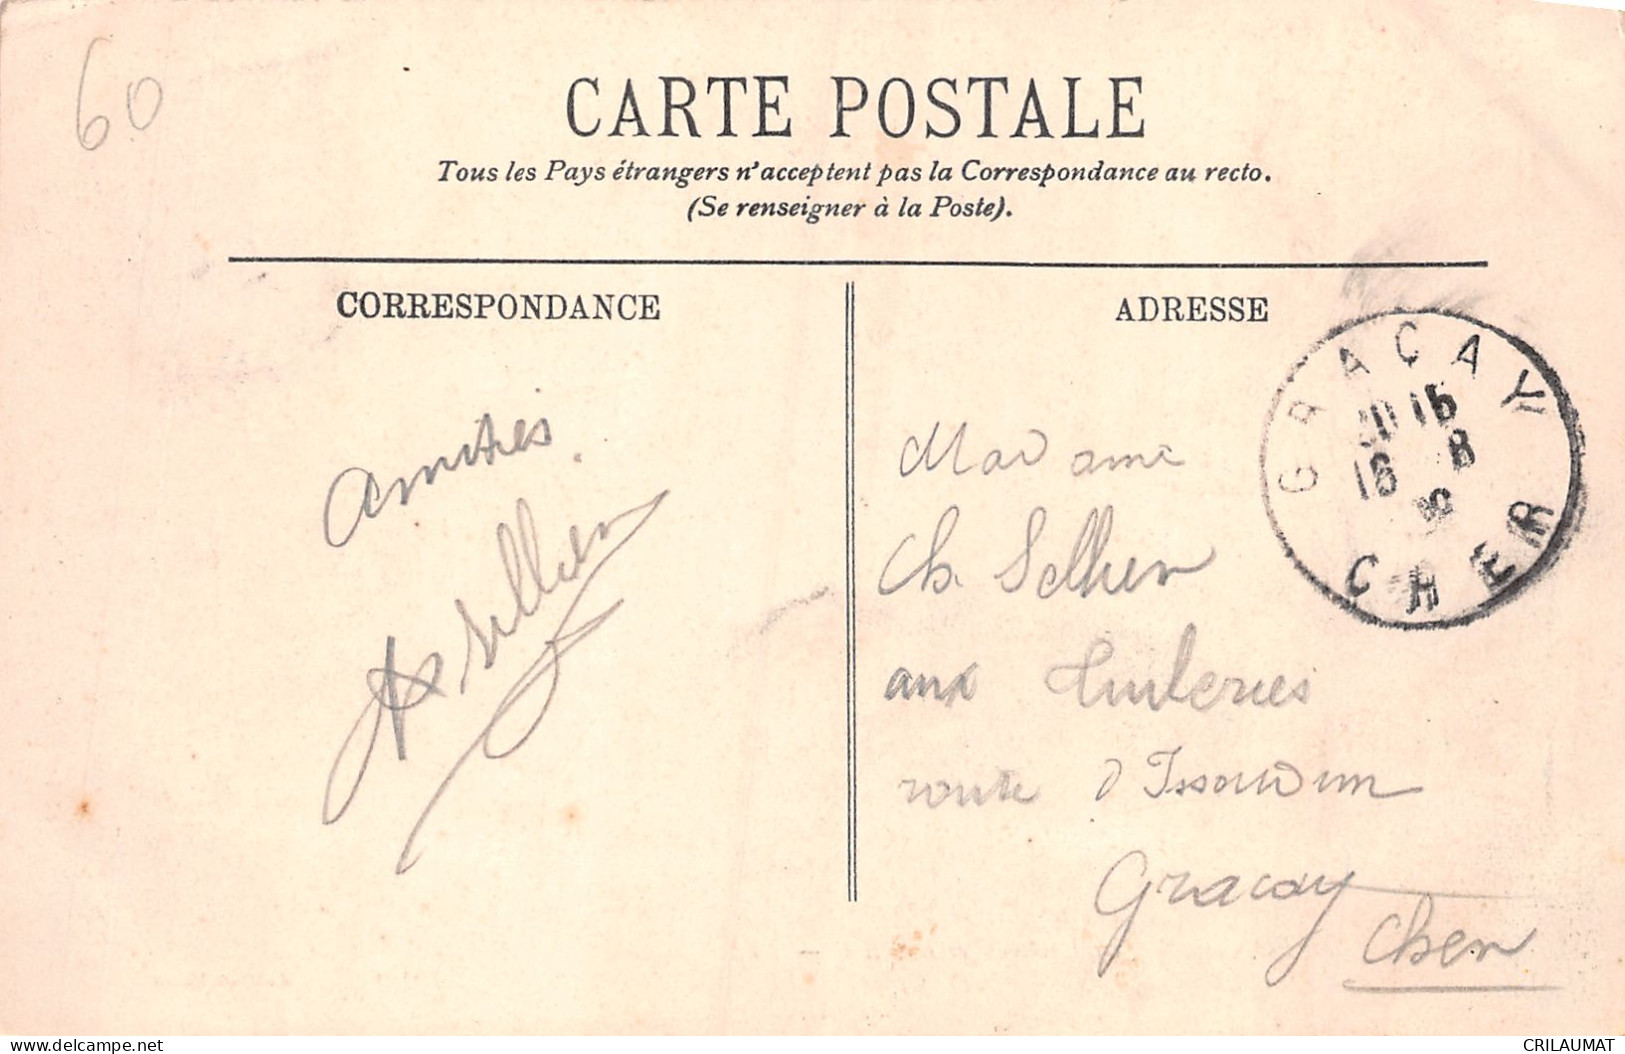 60
CARTE POSTALE
Tous les Pays étrangers n'acceptent pas la Correspondance au recto.
(Se renseigner à la Poste).
CORRESPONDANCE
ADRESSE
GRACAY
16 8
CHER
Amitiés.
Madame
Ch. Selher
aux Tuileries
route d'Issoudun
Gracay
Cher
www.delcampe.net
CRILAUMAT